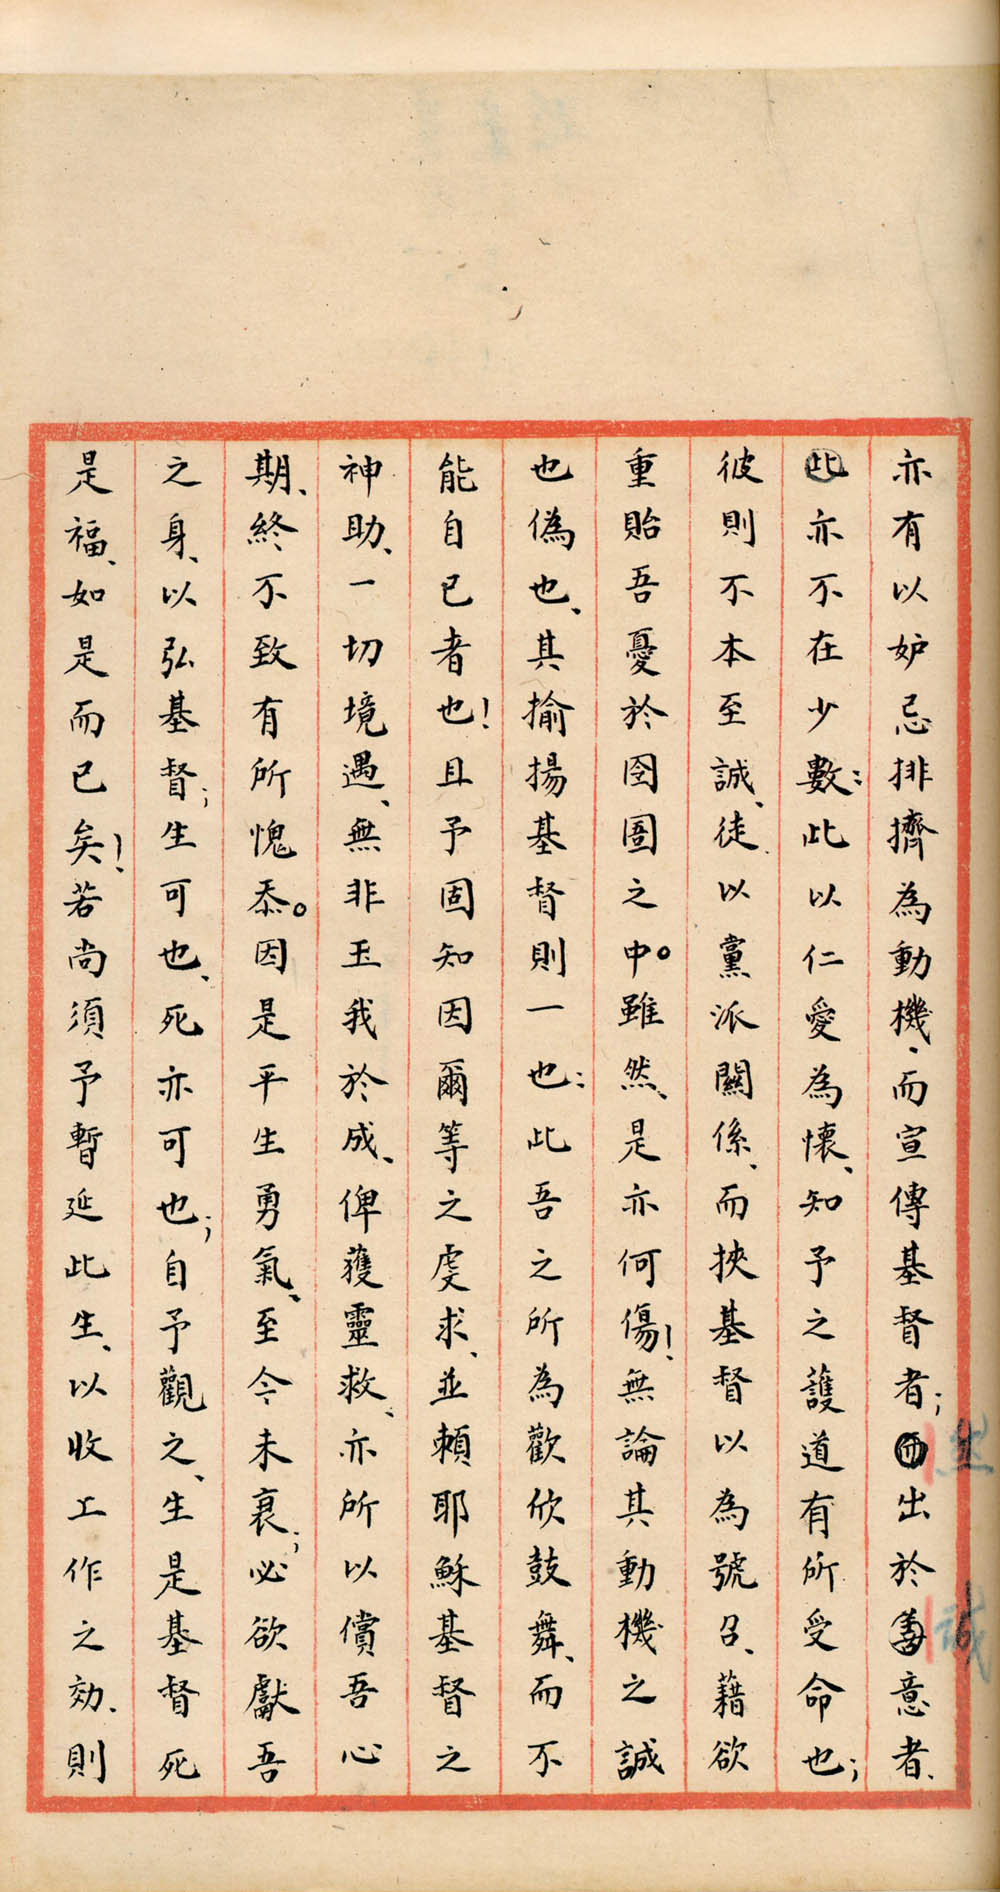 亦有以妒忌排擠為動機、而宣傳基督者；而出於善意者、
此亦不在少數：此以仁愛為懷、知予之護道有所受命也；
彼則不本至誠、徒以黨派關係、而挾基督以為號召、藉欲
重貽吾憂於囹圄之中。雖然、是亦何傷！無論其動機之誠
也偽也、其揄揚基督則一也：此吾之所為歡欣鼓舞、而不
能自已者也！且予固知因爾等之虔求、並賴耶穌基督之
神助、一切境遇、無非玉我於成、俾獲靈救、亦所以償吾心
期、終不致有所愧忝。因是平生勇氣、至今未衰；必欲獻吾
之身、以弘基督；生可也、死亦可也；自予觀之、生是基督死
是福、如是而已矣！若尚須予暫延此生、以收工作之効、則
誠